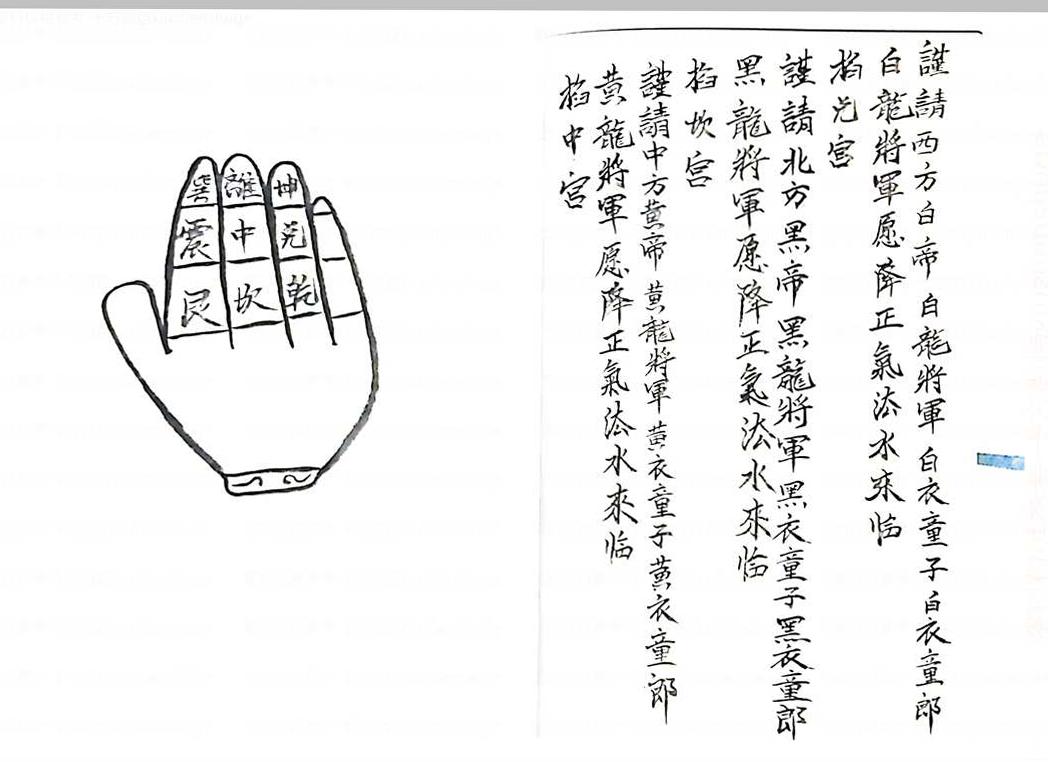 謹請西方白帝 白龍將軍 白衣童子白衣童郎
白龍將軍愿降正氣法水來临
掐兌宮
謹請北方黑帝 黑龍將軍黑衣童子黑衣童郎
黑龍將軍愿降正氣法水來临
掐坎宮
謹請中方黃帝 黃龍將軍 黃衣童子黃衣童郎
黃龍將軍愿降正氣法水來临
掐中宮
巽 離 坤
震 中 兌
艮 坎 乾